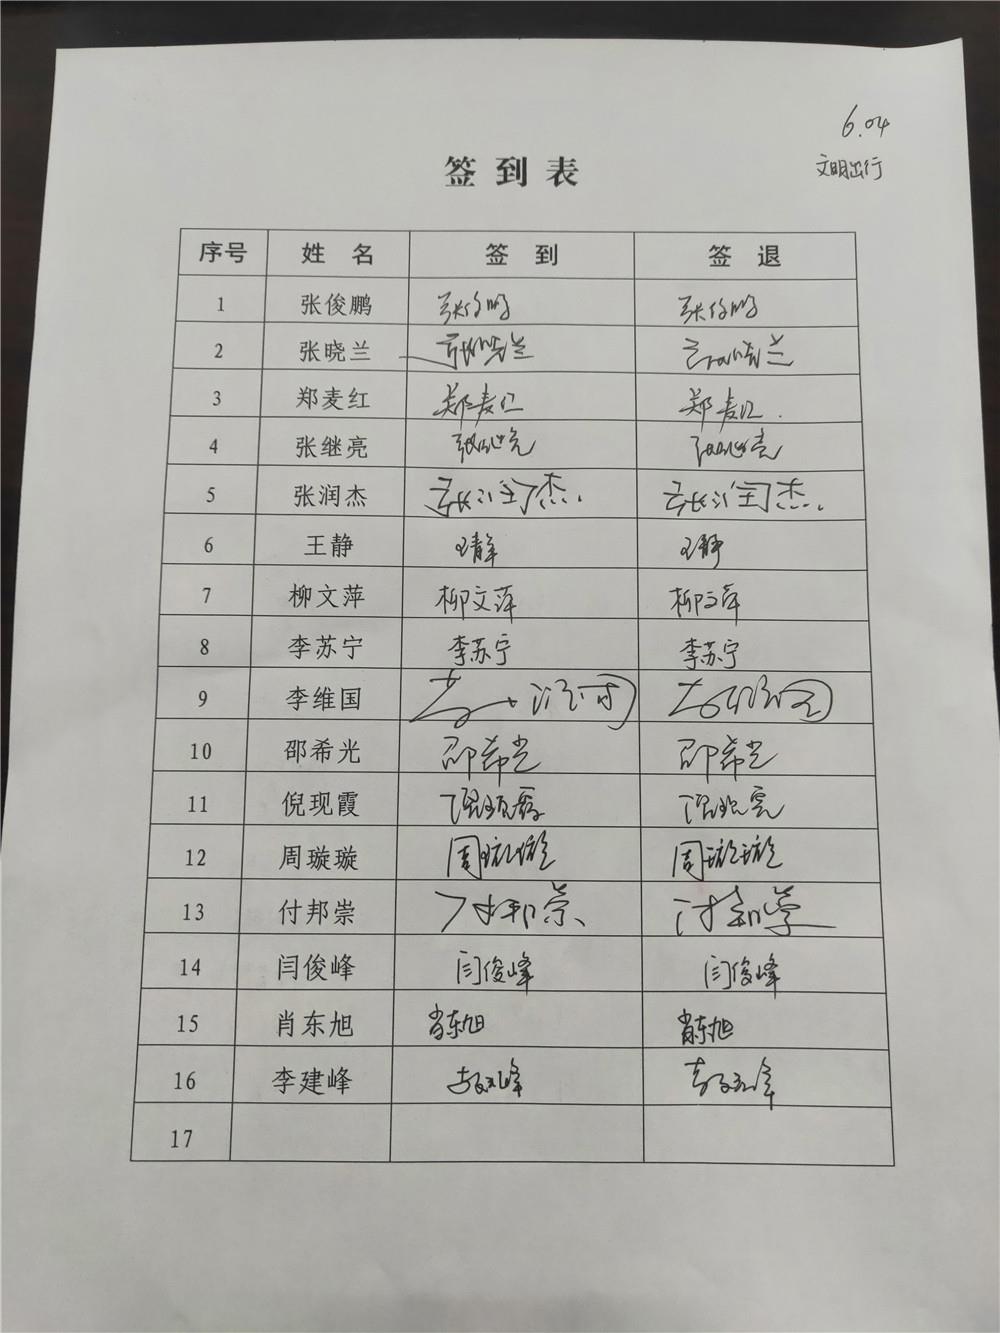 6.04
文明出行
签到表
序号 姓名 签到 签退
1 张俊鹏 张俊鹏 张俊鹏
2 张晓兰 张晓兰 张晓兰
3 郑麦红 郑麦红 郑麦红
4 张继亮 张继亮 张继亮
5 张润杰 张润杰 张润杰
6 王静 王静 王静
7 柳文萍 柳文萍 柳文萍
8 李苏宁 李苏宁 李苏宁
9 李维国
10 邵希光 邵希光 邵希光
11 倪现霞 倪现霞 倪现霞
12 周璇璇 周璇璇 周璇璇
13 付邦崇 付邦崇
14 闫俊峰 闫俊峰 闫俊峰
15 肖东旭 肖东旭 肖东旭
16 李建峰 李建峰 李建峰
17